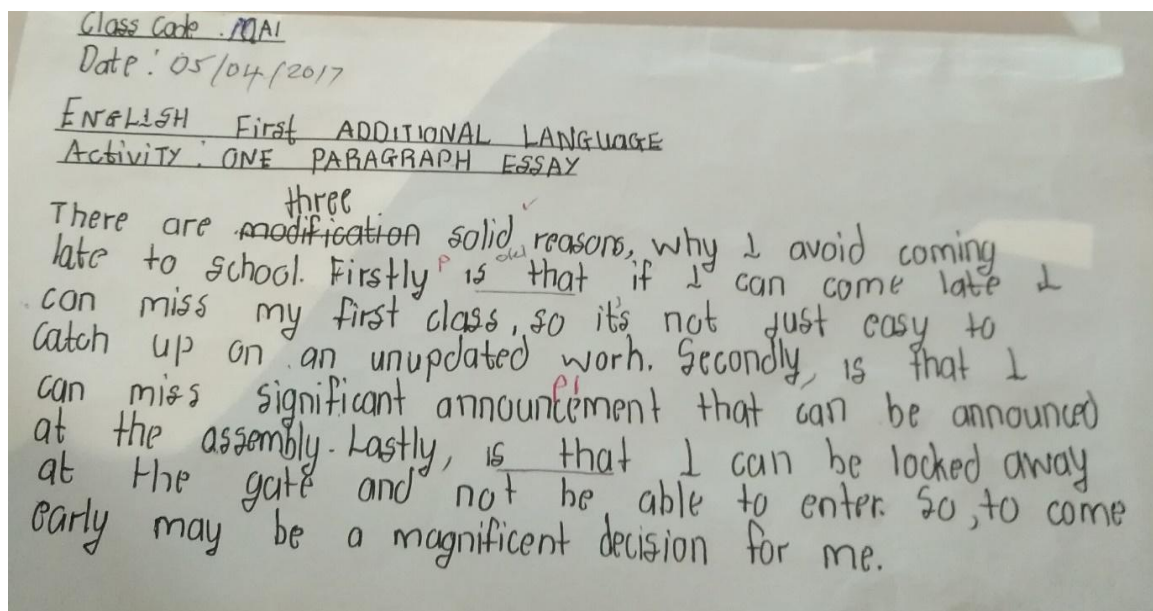 Class Code . MAI
Date: 05/04/2017
ENGLISH First ADDITIONAL LANGUAGE
Activity: ONE PARAGRAPH ESSAY
three
There are modification solid reasons, why I avoid coming
late to school. Firstly P is that if I can come late I
can miss my first class, so it's not just easy to
Catch up on an unupdated work. Secondly, is that I
pl
can miss significant announcement that can be announced
at the assembly. Lastly, is that I can be locked away
at the gate and not be able to enter. So, to come
early may be a magnificent decision for me.